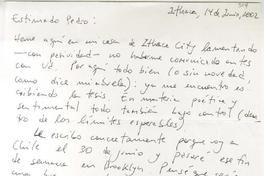 Ithaca, 14 de Junio, 2002
Estimando Pedro:
Heme aquí en mi casa de Ithaca City lamentando
—con no haberme comunicado antes
con Ud. Por aquí todo bien (o sin novedad,
como dice mi abuela): yo me encuentro es-
cribiendo la tesis. En materia poética y
sentimental todo también bajo control (den-
tro de los límites esperables)
Le escribo concretamente porque voy a
Chile el 30 de junio y pasaré ese fin
de semana en Brooklyn. Pensé que
una